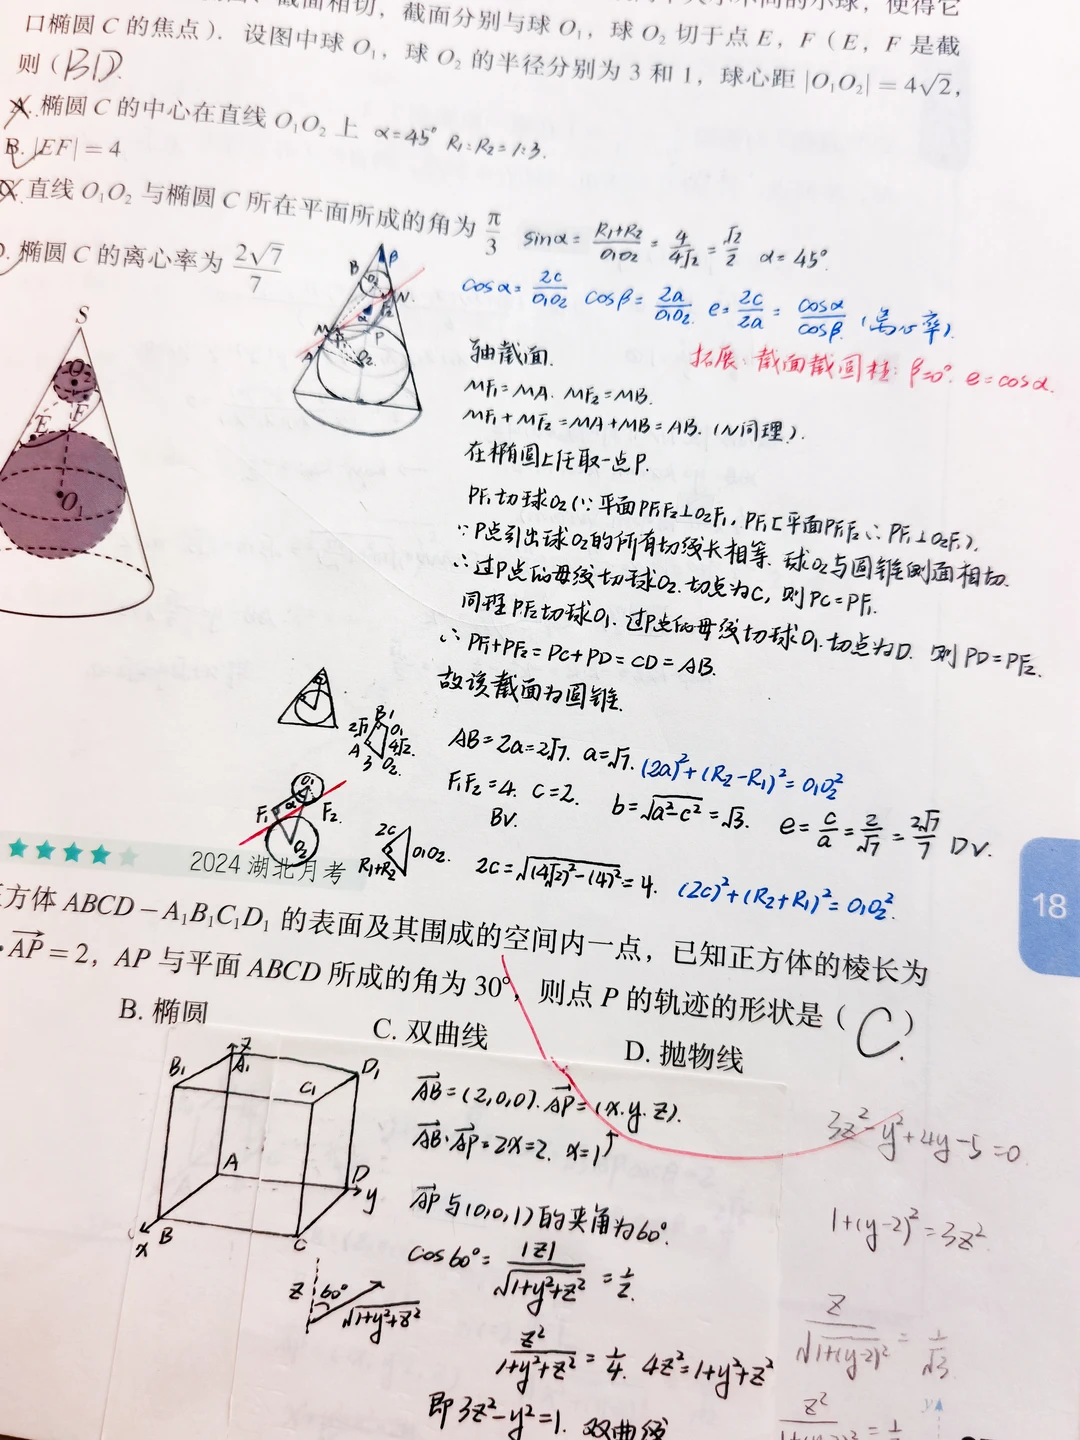 截面相切，截面分别与球 O₁，球 O₂ 切于点 E，F（E，F 是截
口椭圆 C 的焦点）．设图中球 O₁，球 O₂ 的半径分别为 3 和 1，球心距 |O₁O₂| = 4√2，
则（BD.
A. 椭圆 C 的中心在直线 O₁O₂ 上 α=45° R₁:R₂=1:3.
B. |EF| = 4
直线 O₁O₂ 与椭圆 C 所在平面所成的角为 π/3
sinα = (R₁+R₂)/O₁O₂ = 4/4√2 = √2/2 α=45°.
椭圆 C 的离心率为 2√7/7
cosα = 2c/O₁O₂ cosβ = 2a/O₁O₂. e = 2c/2a = cosα/cosβ (离心率).
拓展：截面截圆柱：β=0°. e=cosα.
S
O₂
F
E
O₁
B O₁ β
N
α
M F₁ P
A O₂
轴截面.
MF₁=MA. MF₂=MB.
MF₁+MF₂=MA+MB=AB. (N同理).
在椭圆上任取一点P.
PF₁切球O₂(∵平面PF₁F₂⊥O₂F₁, PF₁⊏平面PF₁F₂ ∴PF₁⊥O₂F₁).
∵P点引出球O₂的所有切线长相等. 球O₂与圆锥侧面相切.
∴过P点的母线切球O₂. 切点为C, 则PC=PF₁.
同理PF₂切球O₁. 过P点的母线切球O₁. 切点为D. 则PD=PF₂.
∴PF₁+PF₂=PC+PD=CD=AB.
故该截面为圆锥.
2√7 B 1 O₁
A 4√2.
3 O₂.
AB=2a=2√7. a=√7. (2a)²+(R₂-R₁)²=O₁O₂²
F₁F₂=4. c=2. b=√(a²-c²)=√3. e=c/a=2/√7=2√7/7 D√.
B√.
O₁
F₁ α F₂.
O₂
2c
R₁+R₂ O₁O₂.
2c=√((4√2)²-(4)²)=4. (2c)²+(R₂+R₁)²=O₁O₂².
2024 湖北月考
18
正方体 ABCD－A₁B₁C₁D₁ 的表面及其围成的空间内一点，已知正方体的棱长为
· AP = 2，AP 与平面 ABCD 所成的角为 30°，则点 P 的轨迹的形状是（ C. ）
B. 椭圆
C. 双曲线
D. 抛物线
z
B₁ A₁ D₁
C₁
A D
y
x B C
z 60° √(1+y²+z²)
AB=(2,0,0). AP=(x.y.z).
AB·AP=2x=2. x=1
AP与(0,0,1)的夹角为60°.
cos60°=|z|/√(1+y²+z²)=1/2.
z²/(1+y²+z²)=1/4. 4z²=1+y²+z²
即3z²-y²=1. 双曲线
3z²-y²+4y-5=0
1+(y-2)²=3z²
z/√(1+(y-2)²)=1/√3